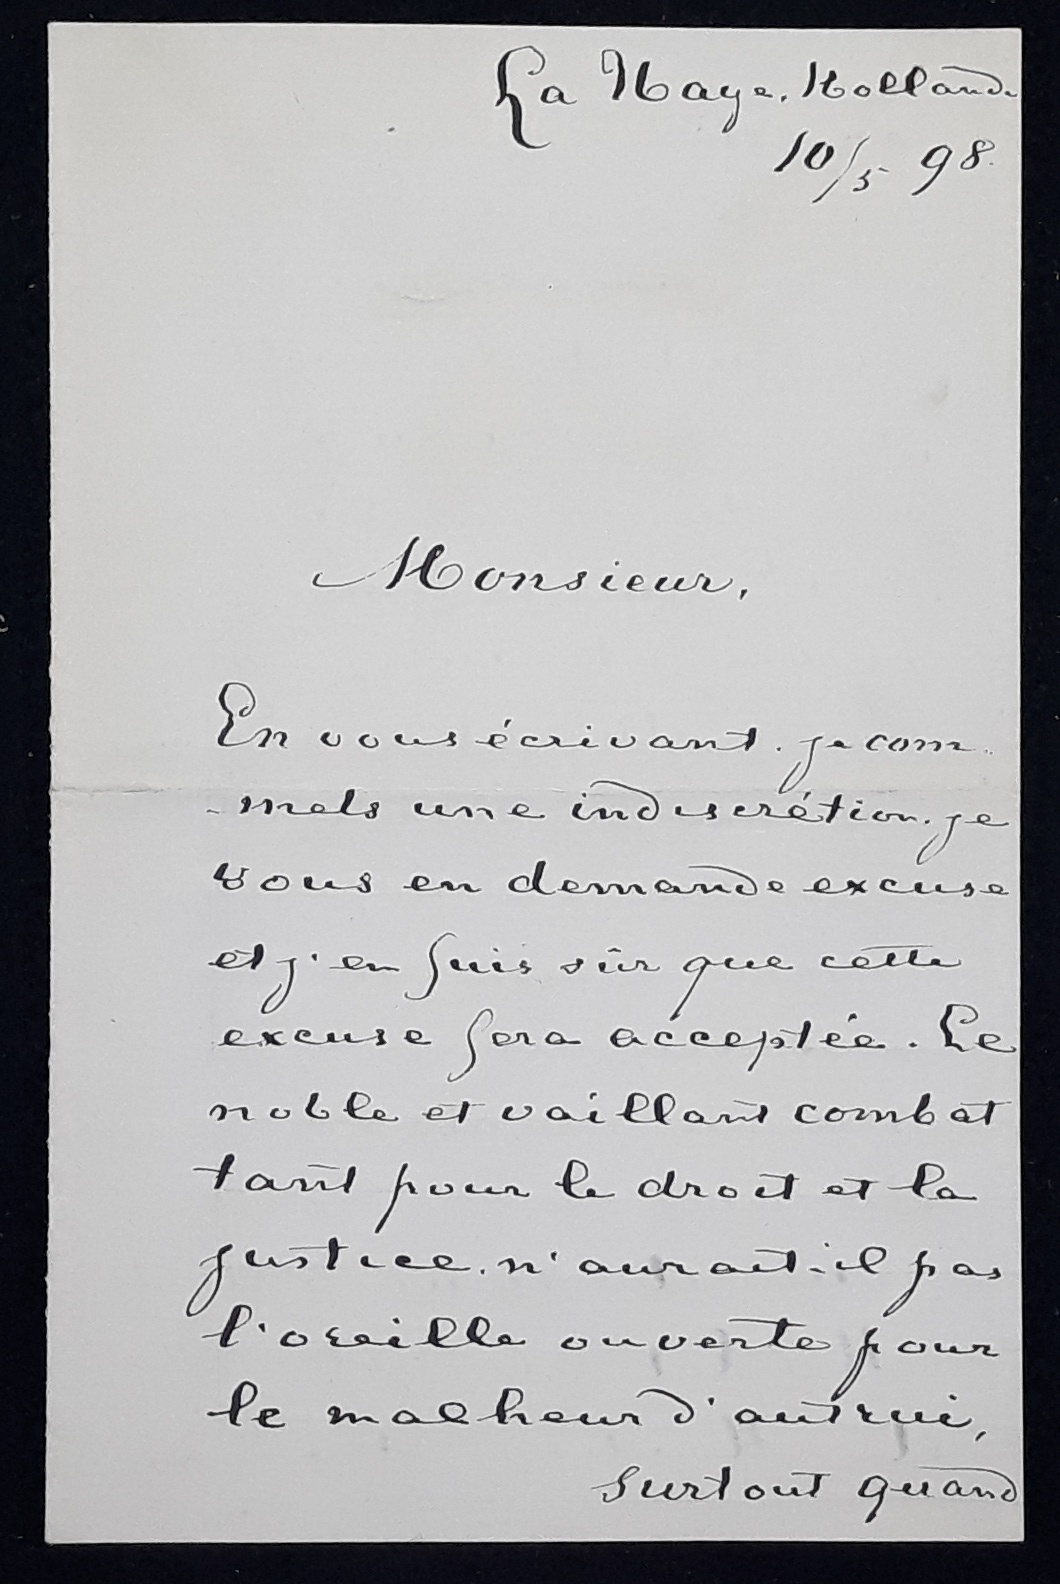 La Haye. Hollande
10/5 98.
Monsieur,
En vous écrivant. je com-
-mets une indiscrétion. je
vous en demande excuse
et j'en suis sûr que cette
excuse sera acceptée. Le
noble et vaillant combat
tant pour le droit et la
justice. n'aurait-il pas
l'oreille ouverte pour
le malheur d'autrui,
surtout quand